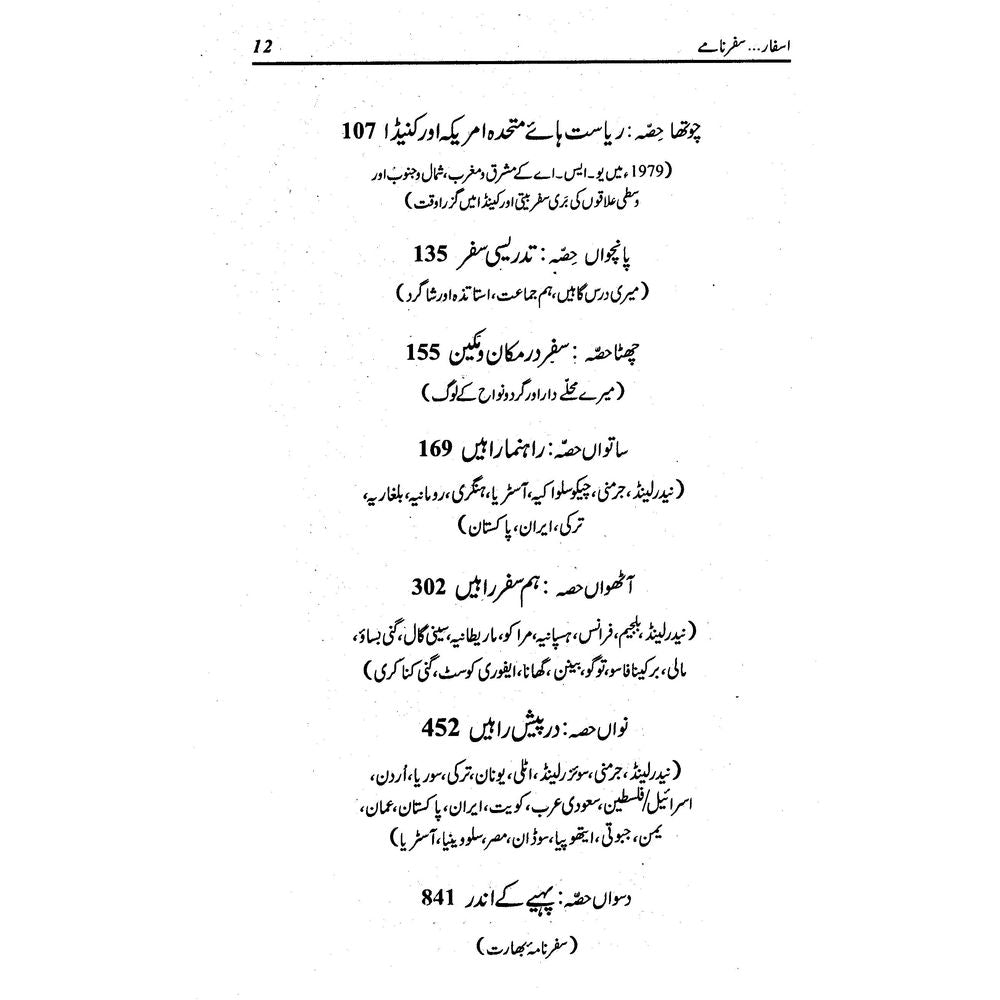 اسفار... سفرنامے 12
چوتھا حِصّہ : ریاست ہائے متحدہ امریکہ اور کنیڈا 107
(1979ء میں یو۔ایس۔اے کے مشرق و مغرب، شمال و جنوب اور
وسطی علاقوں کی بَری سفر بیتی اور کینڈا میں گزرا وقت)
پانچواں حِصّہ : تدریسی سفر 135
(میری درس گاہیں، ہم جماعت، اساتذہ اور شاگرد)
چھٹا حصّہ : سفر در مکان و مکین 155
(میرے محلّے دار اور گرد و نواح کے لوگ)
ساتواں حصّہ : راہنما راہیں 169
(نیدرلینڈ، جرمنی، چیکوسلواکیہ، آسٹریا، ہنگری، رومانیہ، بلغاریہ،
ترکی، ایران، پاکستان)
آٹھواں حصہ : ہم سفر راہیں 302
(نیدرلینڈ، بلجیم، فرانس، ہسپانیہ، مراکو، ماریطانیہ، سینی گال، گنی بساؤ،
مالی، برکینا فاسو، توگو، بینن، گھانا، ایفوری کوسٹ، گنی کناکری)
نواں حصہ : درپیش راہیں 452
(نیدرلینڈ، جرمنی، سوئزرلینڈ، اٹلی، یونان، ترکی، سوریا، اُردن،
اسرائیل/فلسطین، سعودی عرب، کویت، ایران، پاکستان، عمان،
یمن، جبوتی، ایتھوپیا، سوڈان، مصر، سلووینیا، آسٹریا)
دسواں حصّہ : پہیے کے اندر 841
(سفرنامۂ بھارت)